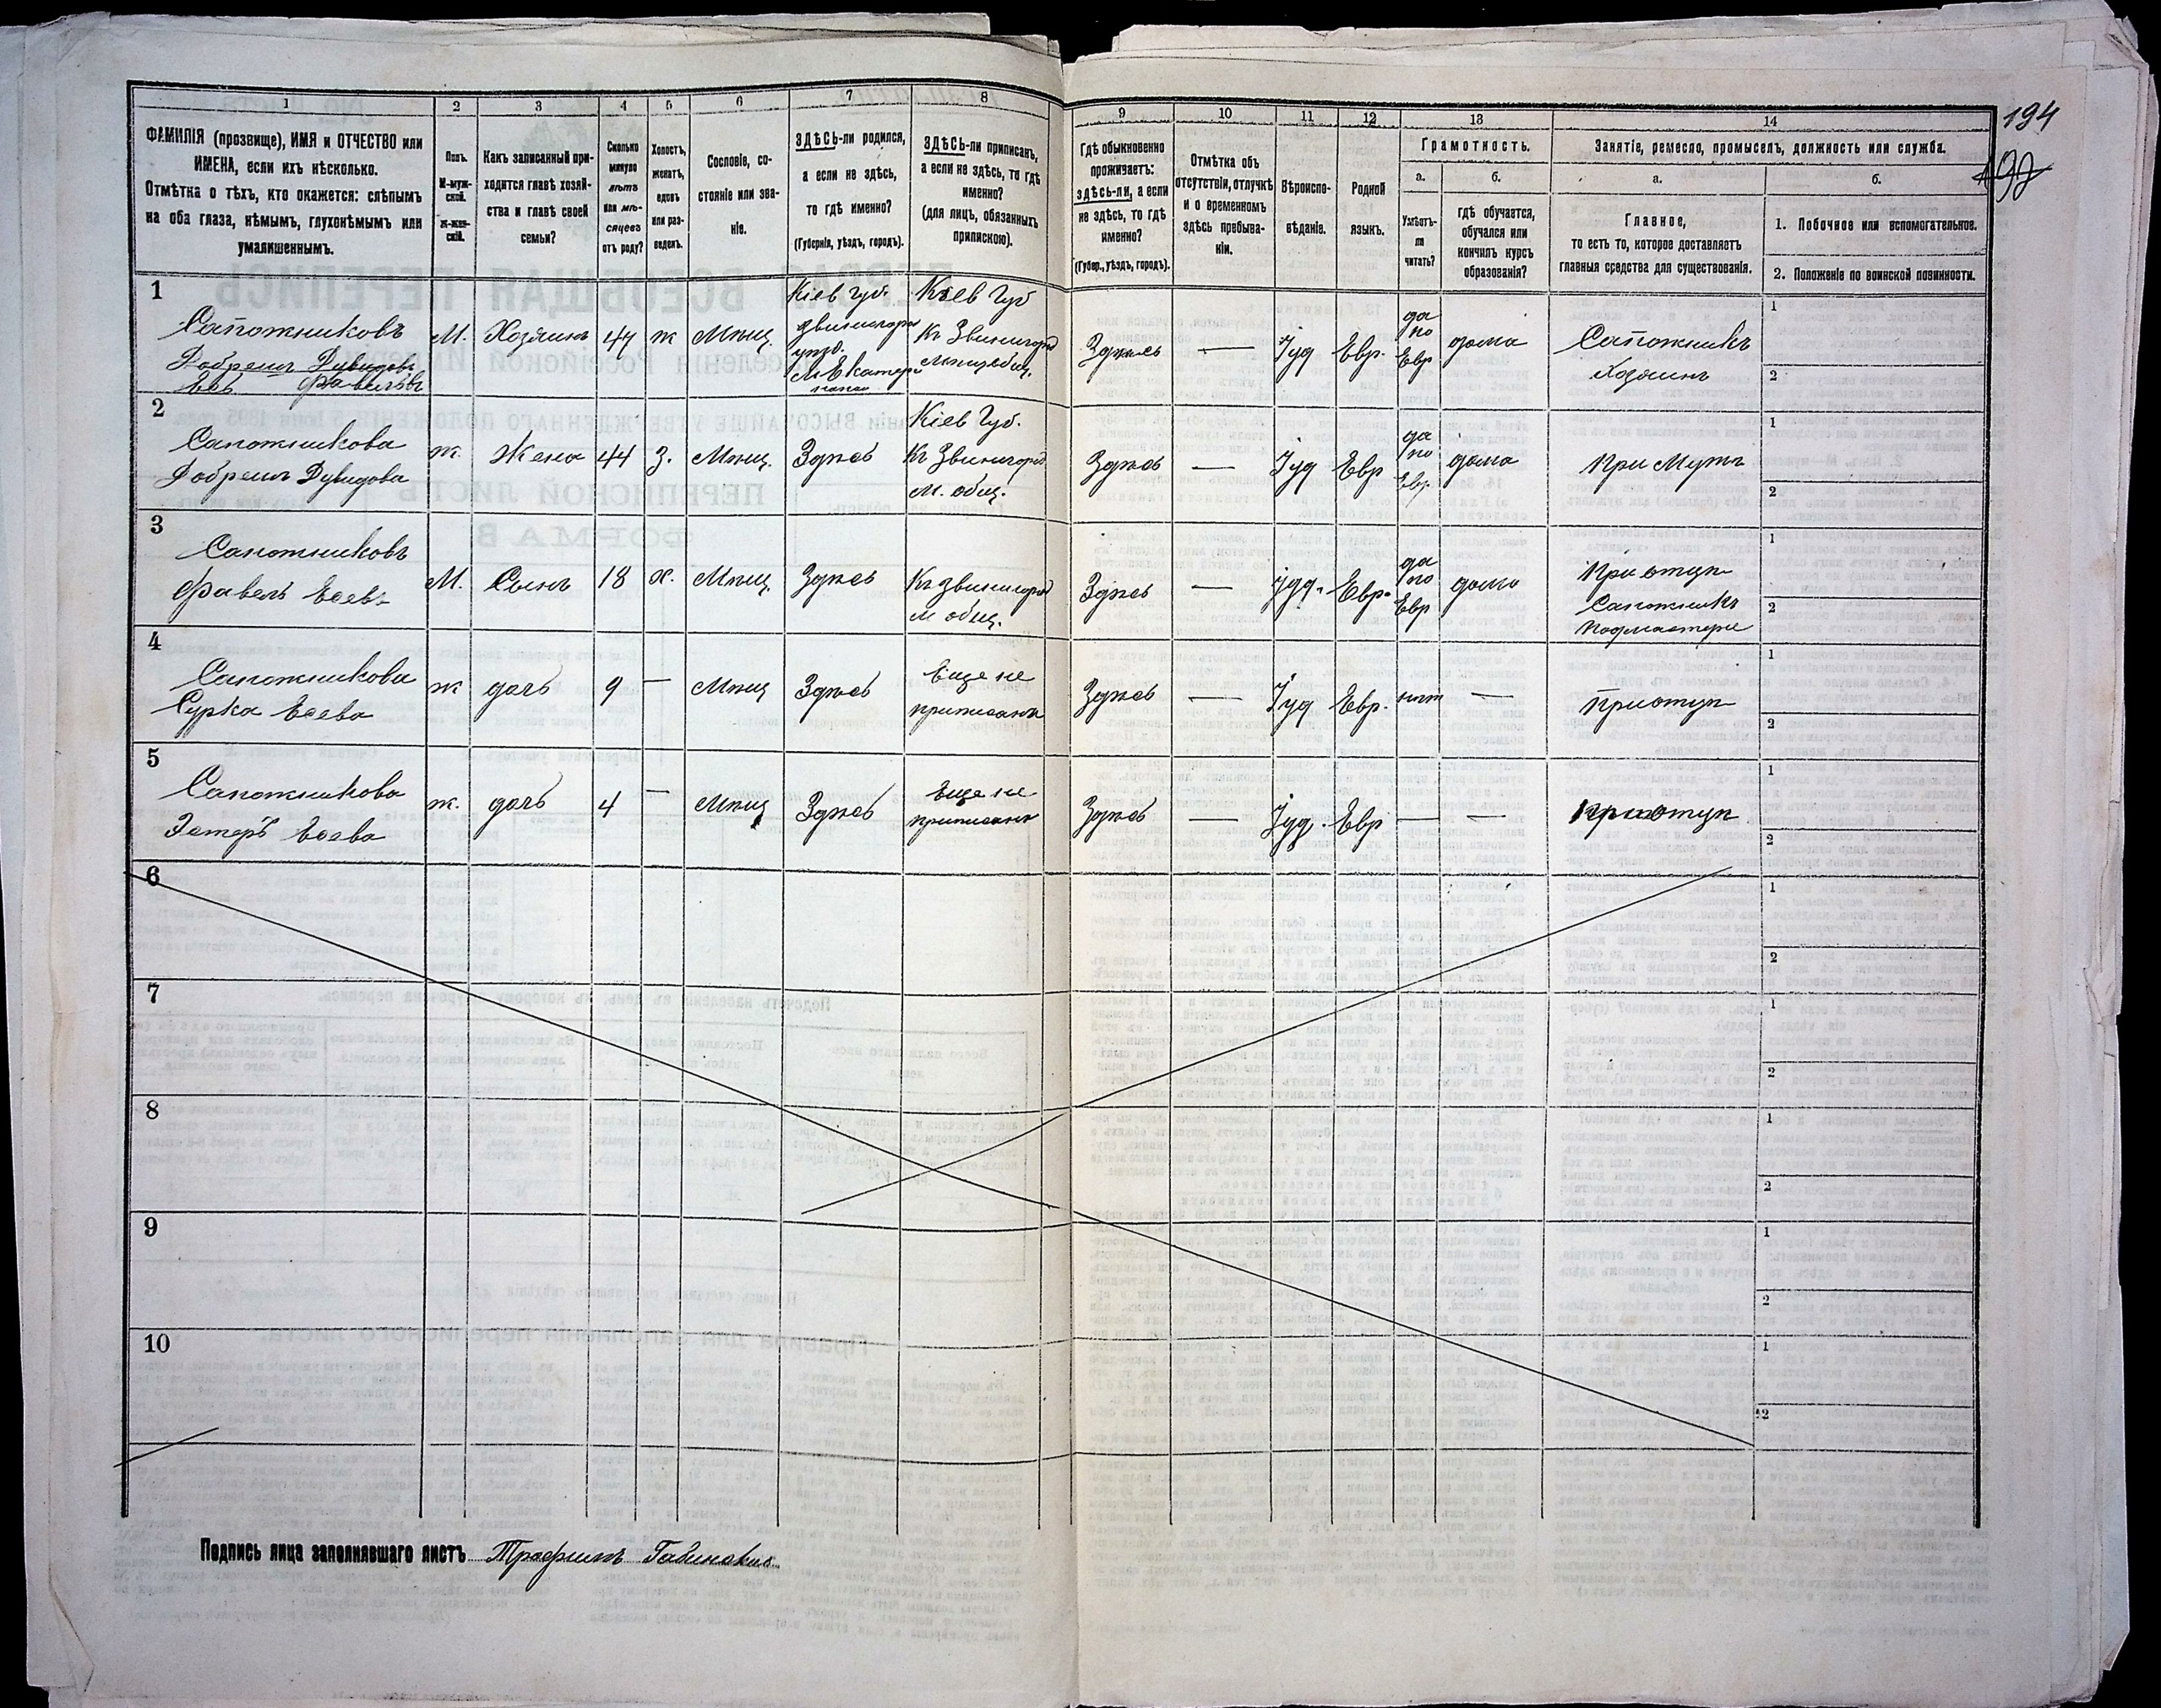 1 2 3 4 5 6 7 8 9 10 11 12 13 14
194
192
ФАМИЛІЯ (прозвище), ИМЯ и ОТЧЕСТВО или
ИМЕНА, если ихъ нѣсколько.
Отмѣтка о тѣхъ, кто окажется: слѣпымъ
на оба глаза, нѣмымъ, глухонѣмымъ или
умалишеннымъ.
Полъ.
М-муж-
ской.
Ж-жен-
скій.
Какъ записанный при-
ходится главѣ хозяй-
ства и главѣ своей
семьи?
Сколько
минуло
лѣтъ
или мѣ-
сяцевъ
отъ роду?
Холостъ,
женатъ,
вдовъ
или раз-
веденъ.
Сословіе, со-
стояніе или зва-
ніе.
ЗДѢСЬ-ли родился,
а если не здѣсь,
то гдѣ именно?
(Губернія, уѣздъ, городъ).
ЗДѢСЬ-ли приписанъ,
а если не здѣсь, то гдѣ
именно?
(для лицъ, обязанныхъ
припискою).
Гдѣ обыкновенно
проживаетъ:
ЗДѢСЬ-ли, а если
не здѣсь, то гдѣ
именно?
(Губер., уѣздъ, городъ).
Отмѣтка объ
отсутствіи, отлучкѣ
и о временномъ
здѣсь пребыва-
ніи.
Вѣроиспо-
вѣданіе.
Родной
языкъ.
Грамотность.
а.
Умѣетъ-
ли
читать?
б.
гдѣ обучается,
обучался или
кончилъ курсъ
образованія?
Занятіе, ремесло, промыселъ, должность или служба.
а.
Главное,
то есть то, которое доставляетъ
главныя средства для существованія.
б.
1. Побочное или вспомогательное.
2. Положеніе по воинской повинности.
1
Сапожниковъ
Добрешъ Дувидова
Еѳь Фавелевъ
М. Хозяинъ 44 ж Мѣщ.
Кіев Губ.
Звенигоро
уѣзд.
М Екатери
Кіев Губ
Къ Звенигород
мѣщ общ.
Здѣсь — Іуд Евр.
да
по
Евр
дома
Сапожникъ
Хозяинъ
1
2
2
Сапожникова
Добрешъ Дувидова
ж Жена 44 З. Мѣщ. Здѣсь
Кіев Губ.
Къ Звенигород
м. общ.
Здѣсь — Іуд Евр
да
по
Евр
дома
при Мужѣ
1
2
3
Сапожниковъ
Фавель Еѳевъ
М. Сынъ 18 х. Мѣщ. Здѣсь
Къ Звенигород
м общ.
Здѣсь — Іуд. Евр.
да
по
Евр
дома
При отцѣ
Сапожникъ
подмастерье
1
2
4
Сапожникова
Сурка Еѳева
ж дочь 9 — Мѣщ Здѣсь
Еще не
приписана
Здѣсь — Іуд Евр. нѣт —
При отцѣ
1
2
5
Сапожникова
Эстеръ Еѳева
ж. дочь 4 — Мѣщ Здѣсь
Еще не
приписана
Здѣсь — Іуд. Евр — —
При отцѣ
1
2
6
1
2
7
1
2
8
1
2
9
1
2
10
1
2
Подпись лица заполнявшаго листъ Трофимъ